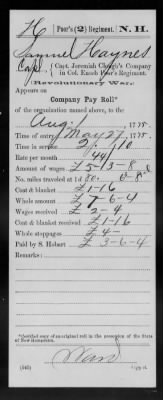 H | Poor's (2) Regiment. | N. H.
Samuel Haynes
Capt., { Capt. Jeremiah Clough's Company
in Col. Enoch Poor's Regiment.
Revolutionary War.
Appears on
Company Pay Roll*
of the organization named above, to the
Aug. 1, 1775.
Time of entry May 27, 1775.
Time in service 2. 10
Rate per month 44/
Amount of wages £ 5-13-8
No. miles traveled at 1d 80. 6-8
Coat & blanket £ 1-16
Whole amount £ 7-6-4
Wages received £ 2-4
Coat & blanket received £ 1-16
Whole stoppages £ 4-
Paid by S. Hobart £ 3-6-4
Remarks:
*Certified copy of an original roll in the possession of the State
of New Hampshire.
Copyist.